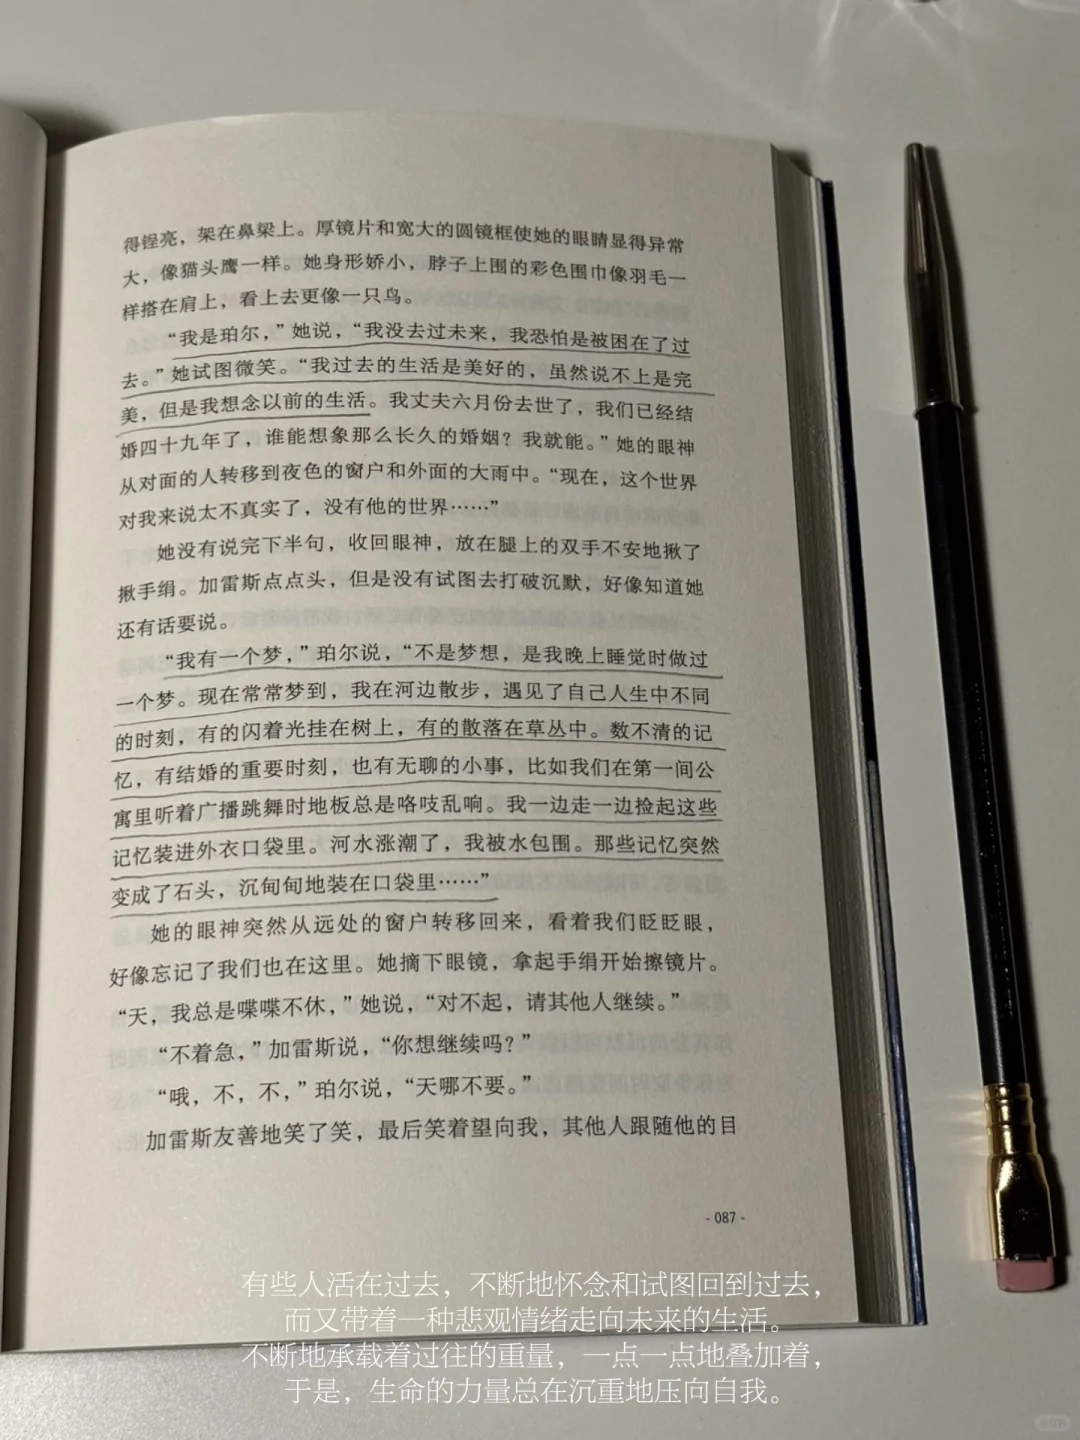 得锃亮，架在鼻梁上。厚镜片和宽大的圆镜框使她的眼睛显得异常
大，像猫头鹰一样。她身形娇小，脖子上围的彩色围巾像羽毛一
样搭在肩上，看上去更像一只鸟。
“我是珀尔，”她说，“我没去过未来，我恐怕是被困在了过
去。”她试图微笑。“我过去的生活是美好的，虽然说不上是完
美，但是我想念以前的生活。我丈夫六月份去世了，我们已经结
婚四十九年了，谁能想象那么长久的婚姻？我就能。”她的眼神
从对面的人转移到夜色的窗户和外面的大雨中。“现在，这个世界
对我来说太不真实了，没有他的世界……”
她没有说完下半句，收回眼神，放在腿上的双手不安地揪了
揪手绢。加雷斯点点头，但是没有试图去打破沉默，好像知道她
还有话要说。
“我有一个梦，”珀尔说，“不是梦想，是我晚上睡觉时做过
一个梦。现在常常梦到，我在河边散步，遇见了自己人生中不同
的时刻，有的闪着光挂在树上，有的散落在草丛中。数不清的记
忆，有结婚的重要时刻，也有无聊的小事，比如我们在第一间公
寓里听着广播跳舞时地板总是咯吱乱响。我一边走一边捡起这些
记忆装进外衣口袋里。河水涨潮了，我被水包围。那些记忆突然
变成了石头，沉甸甸地装在口袋里……”
她的眼神突然从远处的窗户转移回来，看着我们眨眨眼，
好像忘记了我们也在这里。她摘下眼镜，拿起手绢开始擦镜片。
“天，我总是喋喋不休，”她说，“对不起，请其他人继续。”
“不着急，”加雷斯说，“你想继续吗？”
“哦，不，不，”珀尔说，“天哪不要。”
加雷斯友善地笑了笑，最后笑着望向我，其他人跟随他的目
- 087 -
有些人活在过去，不断地怀念和试图回到过去，
而又带着一种悲观情绪走向未来的生活。
不断地承载着过往的重量，一点一点地叠加着，
于是，生命的力量总在沉重地压向自我。